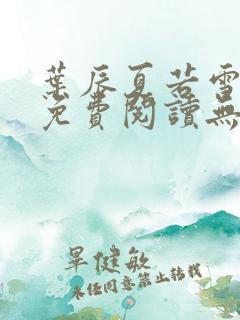 葉辰夏若雪
免費閱讀無
單健敏
未經同意禁止轉載